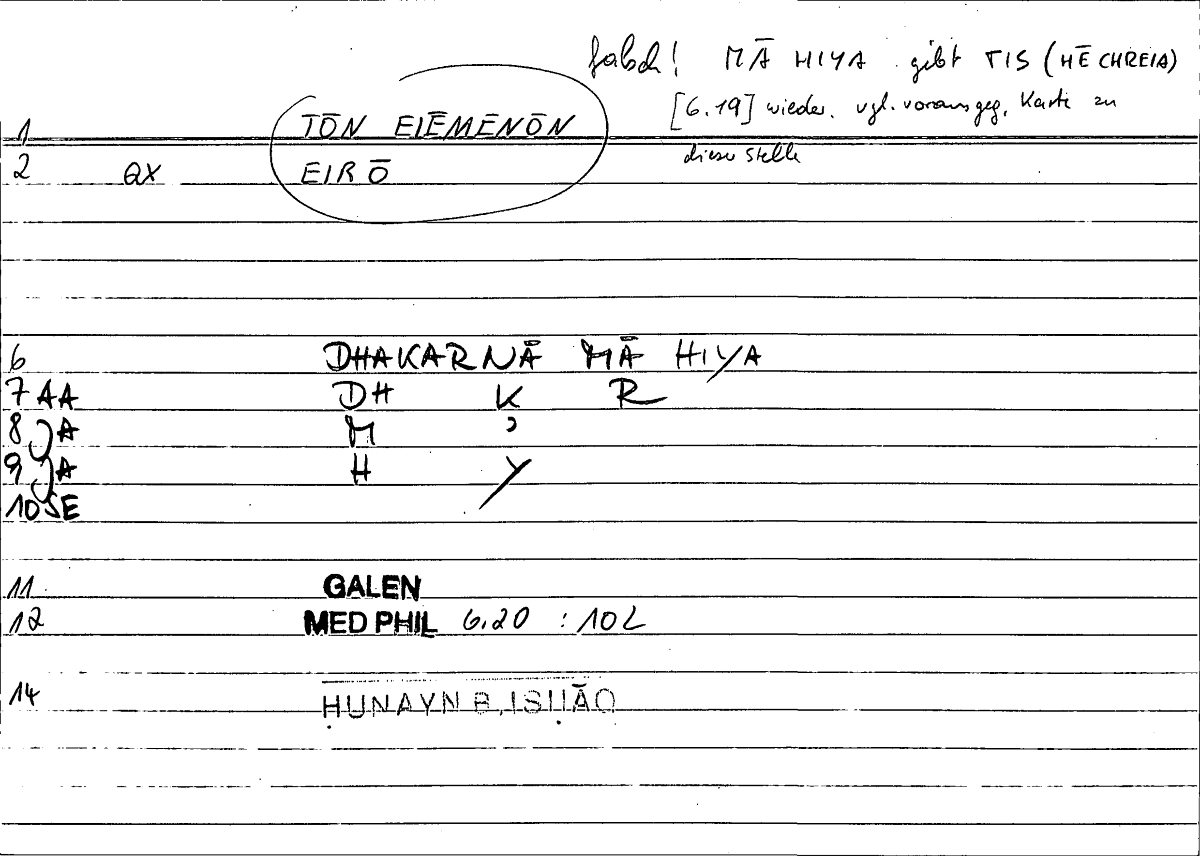 falsch! MĀ HIYA gibt TIS (HĒ CHREIA)
[6.19] wieder. vgl. vorausgeg. Karte zu
dieser Stelle
1 TŌN EIĒMENŌN
2 QX EIRŌ
6 DHAKARNĀ MĀ HIYA
7 AA DH K R
8 JA M ʾ
9 JA H Y
10 SE
11 GALEN
12 MED PHIL 6.20 : 10 L
14 ḤUNAYN B. ISḤĀQ